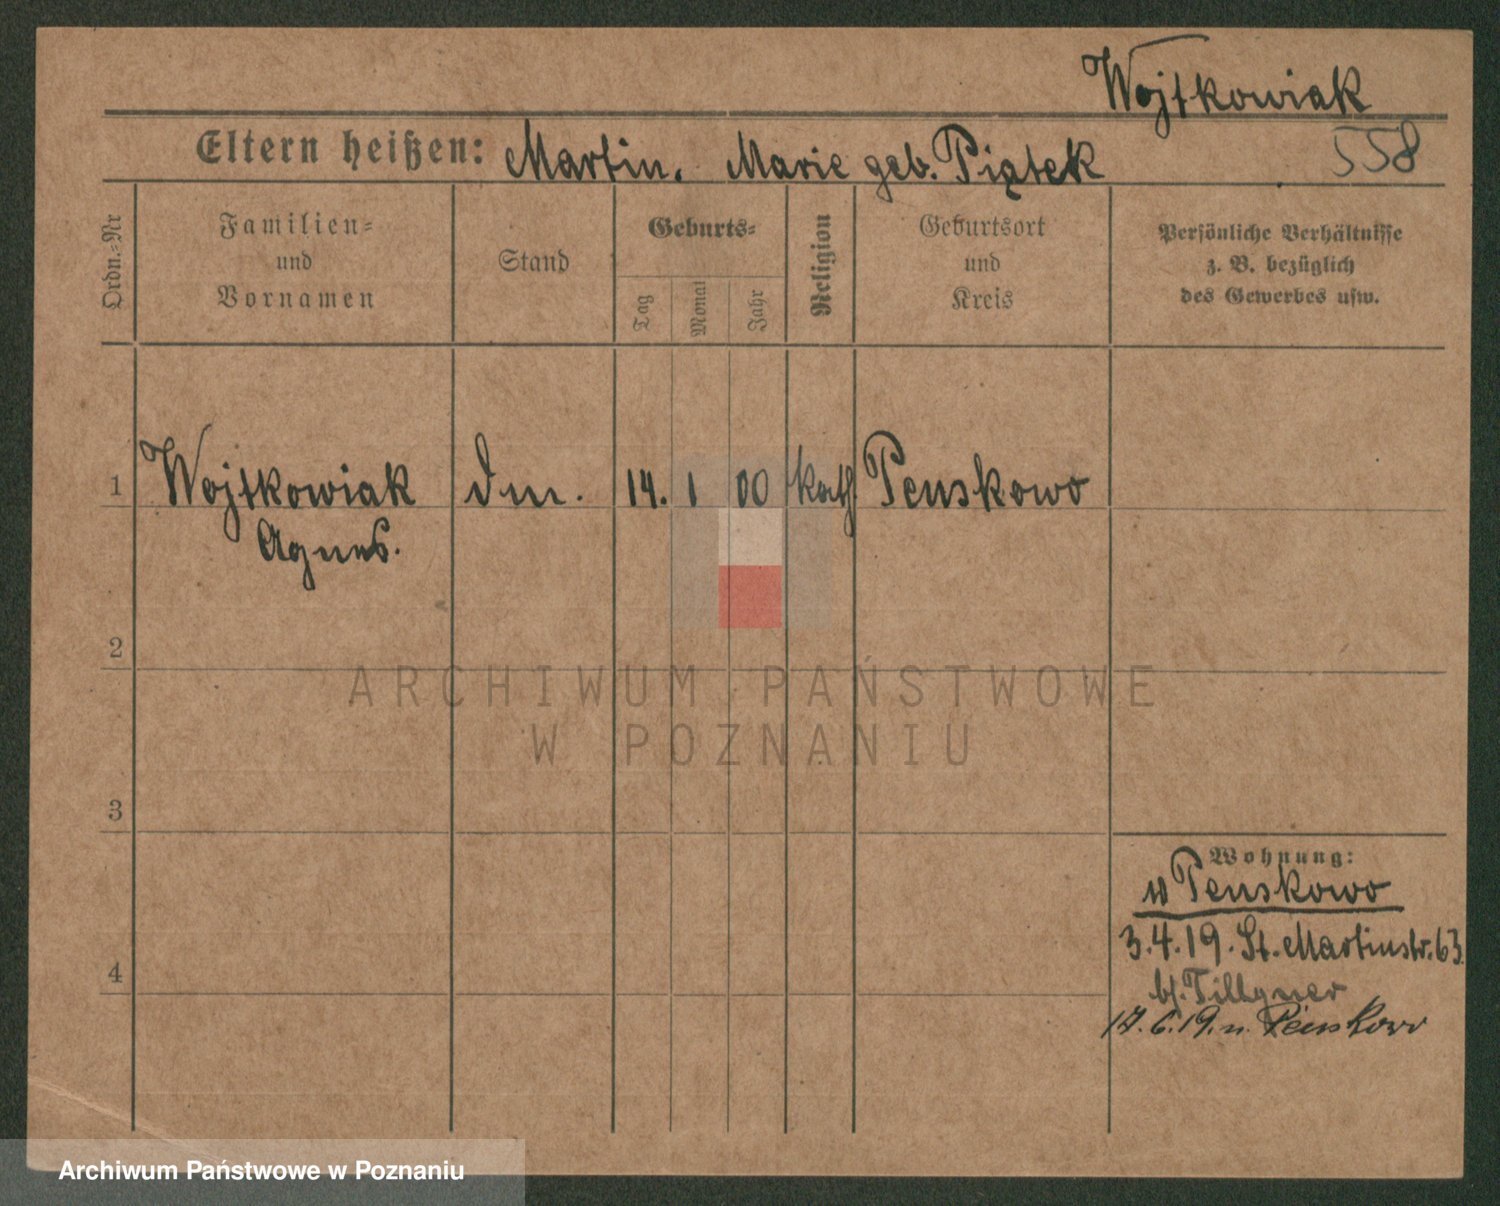 Wojtkowiak
558
Eltern heißen: Martin. Marie geb. Piątek
Ordn.-Nr
Familien-
und
Vornamen
Stand
Geburts-
Tag
Monat
Jahr
Religion
Geburtsort
und
Kreis
Persönliche Verhältnisse
z. B. bezüglich
des Gewerbes usw.
1 Wojtkowiak 14. 1 00 kath. Penskowo
Agnes.
2
3
4
Wohnung:
Penskowo
3.4.19. St. Martinstr. 63.
b/. Tillgner
17.6.19. n. Penskowo
ARCHIWUM PAŃSTWOWE
W POZNANIU
Archiwum Państwowe w Poznaniu